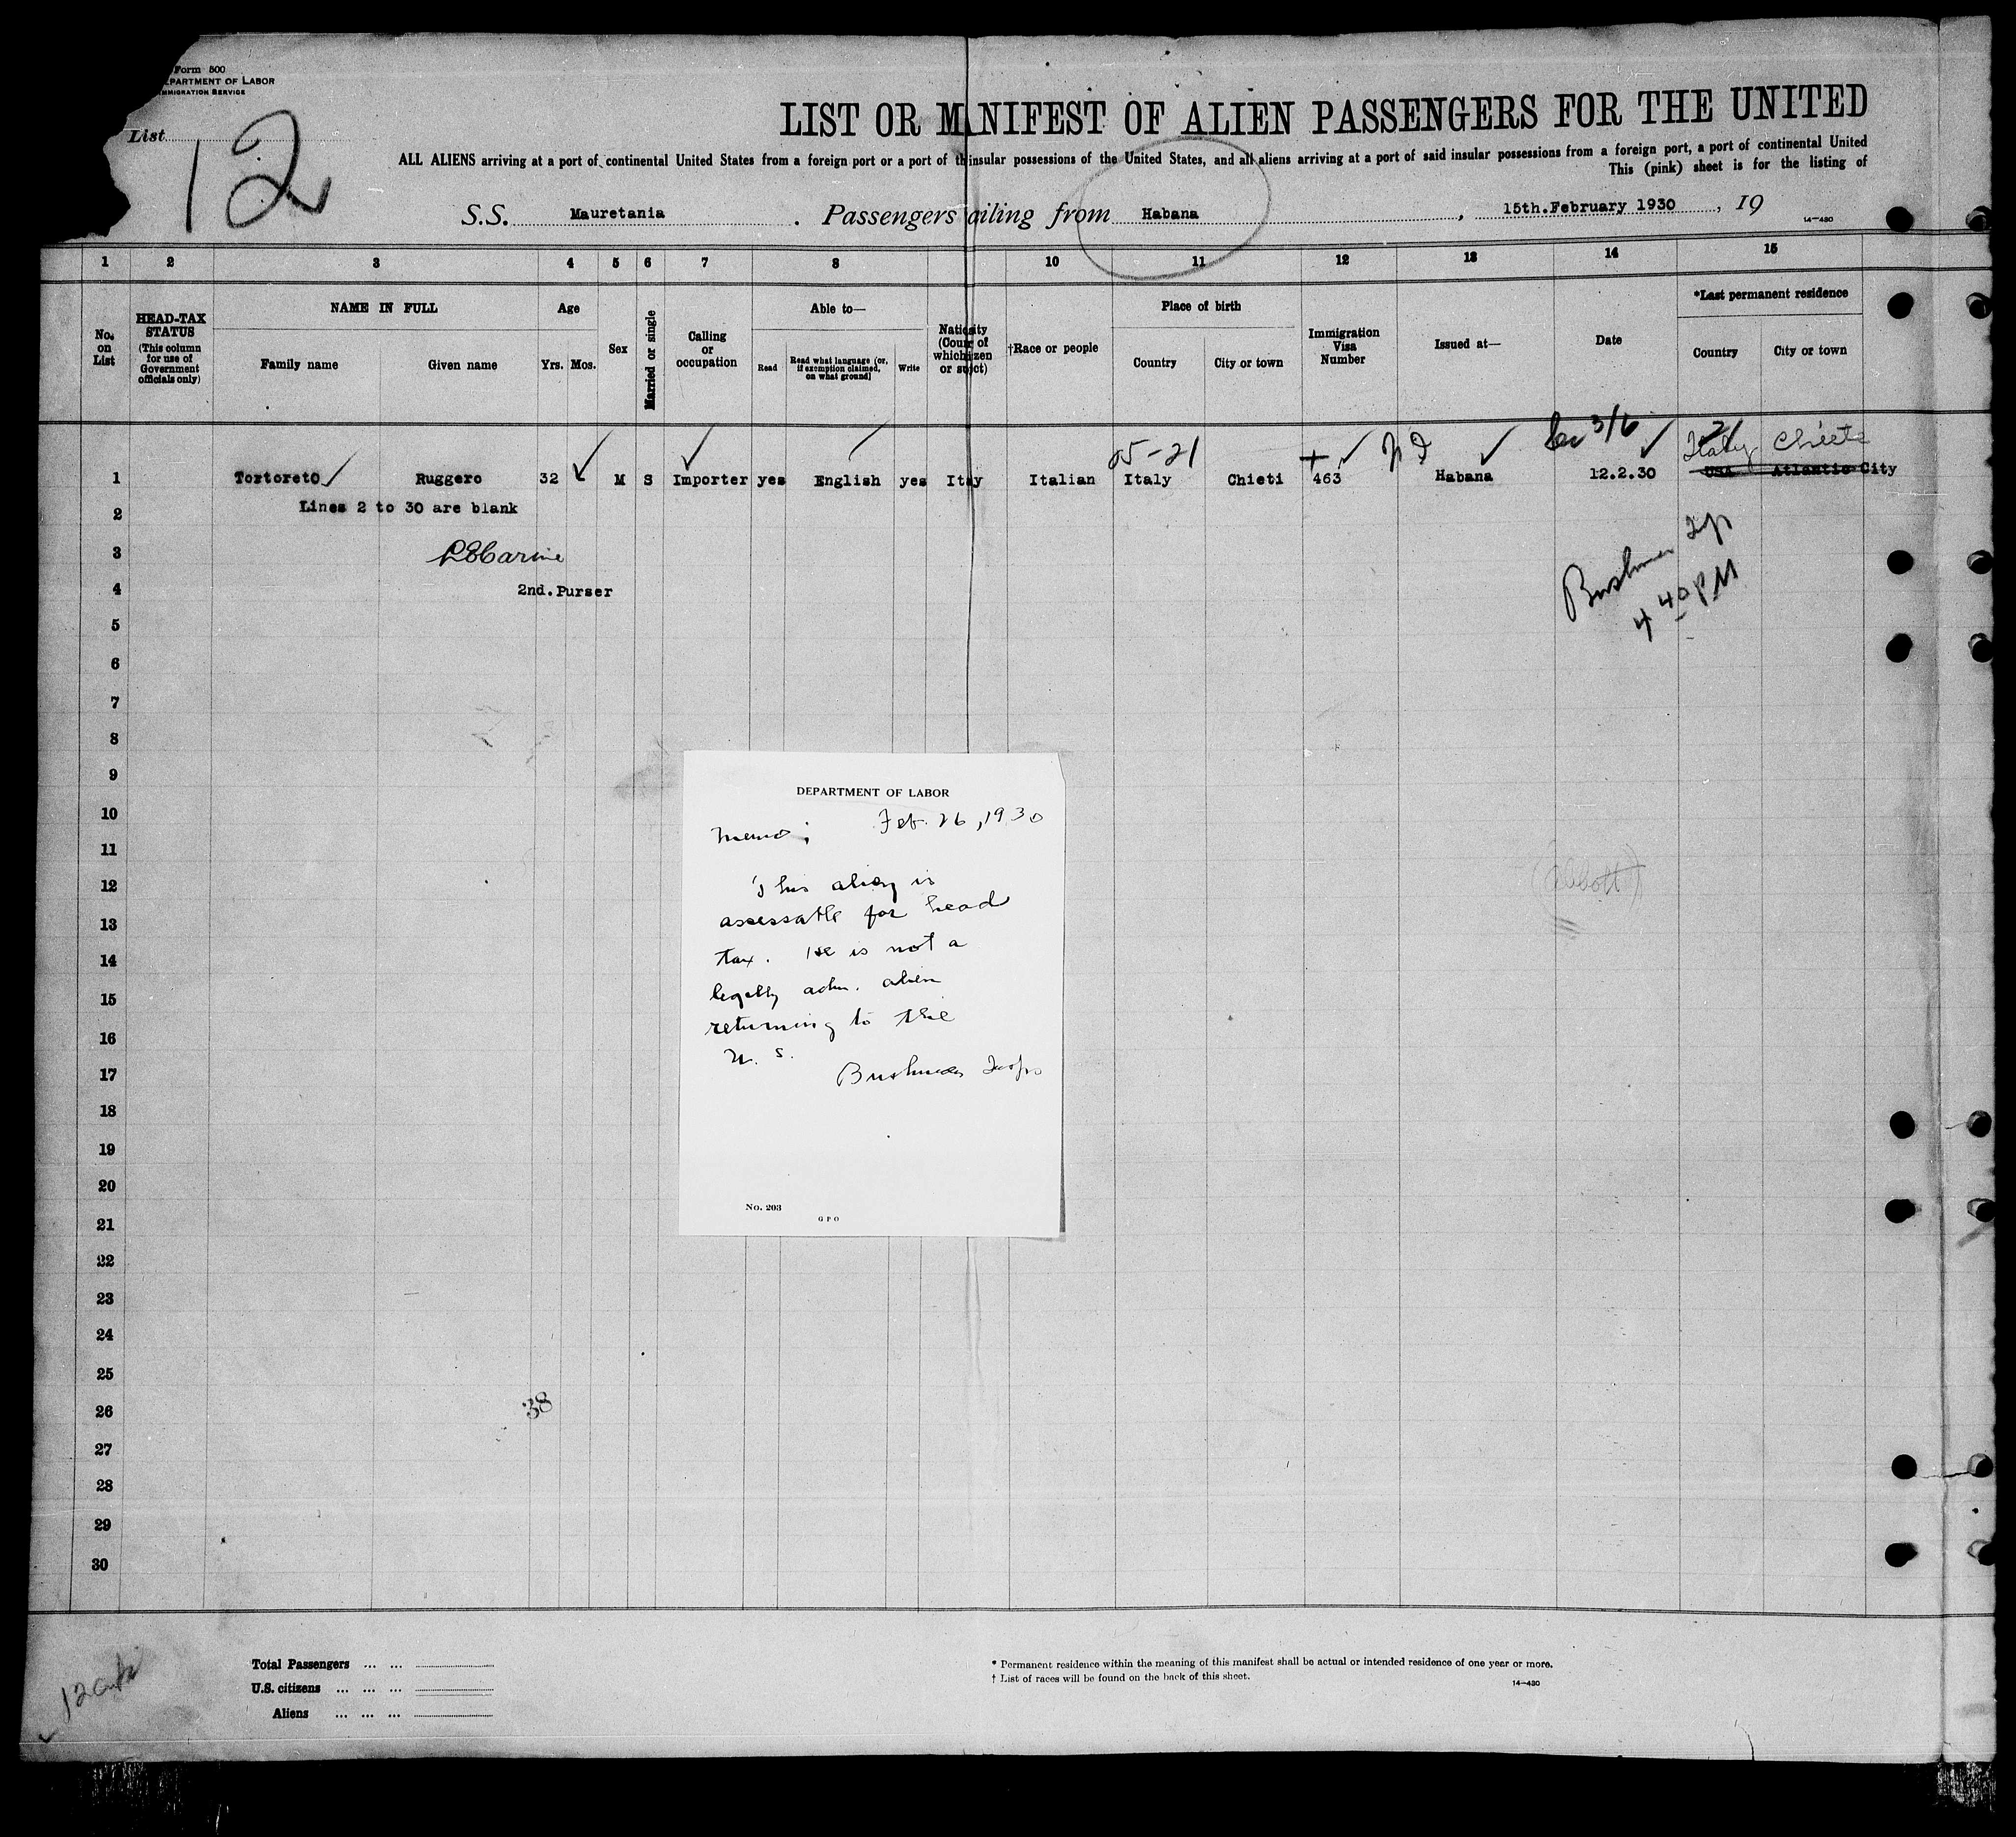 Form 500
DEPARTMENT OF LABOR
IMMIGRATION SERVICE
List
12
LIST OR MANIFEST OF ALIEN PASSENGERS FOR THE UNITED
ALL ALIENS arriving at a port of continental United States from a foreign port or a port of th insular possessions of the United States, and all aliens arriving at a port of said insular possessions from a foreign port, a port of continental United
This (pink) sheet is for the listing of
S.S. Mauretania . Passengers ailing from Habana , 15th.February 1930 , 19
14—430
1 2 3 4 5 6 7 8 10 11 12 13 14 15
No. on List
HEAD-TAX STATUS (This column for use of Government officials only)
NAME IN FULL
Family name Given name
Age
Yrs. Mos.
Sex
Married or single
Calling or occupation
Able to—
Read
Read what language (or, if exemption claimed, on what ground)
Write
†Race or people
Place of birth
Country City or town
Immigration Visa Number
Issued at—
Date
*Last permanent residence
Country City or town
05-21
3/6
Italy Chieti
1 Tortoreto Ruggero 32 M S Importer yes English yes Itay Italian Italy Chieti 463 Habana 12.2.30 USA Atlantic City
2 Lines 2 to 30 are blank
3
4 2nd.Purser
Bushman Isp
4 40 PM
5
6
7
8
9
10
11
12
13
14
15
16
17
18
19
20
21
22
23
24
25
26
27
28
29
30
(Abbott)
38
DEPARTMENT OF LABOR
Memo; Feb. 26, 1930
This alien is
assessable for head
tax. He is not a
legally adm. alien
returning to the
U. S.
Bushman Insp
No. 203
GPO
Total Passengers ... ...
U.S. citizens ... ... ...
Aliens ... ... ...
* Permanent residence within the meaning of this manifest shall be actual or intended residence of one year or more.
† List of races will be found on the back of this sheet.
14—430